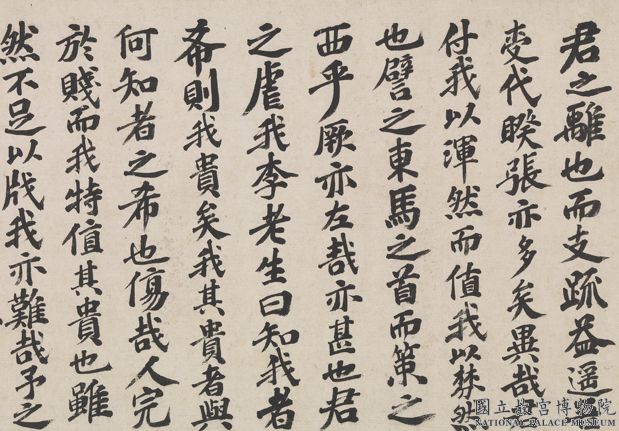 君之離也而支疏益遥
变代睽張亦多矣異哉
付我以渾然而值我以棼然
也譬之東馬之首而策之
西乎厥亦左哉亦甚也君
之虐我李老生曰知我者
希則我貴矣我其貴者與
何知者之希也傷哉人完
於賤而我特值其貴也雖
然不足以戕我亦難哉予之
國立故宮博物院
NATIONAL PALACE MUSEUM